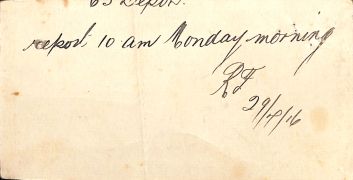 63 Depot.
report 10 am Monday morning
RF
29/4/16